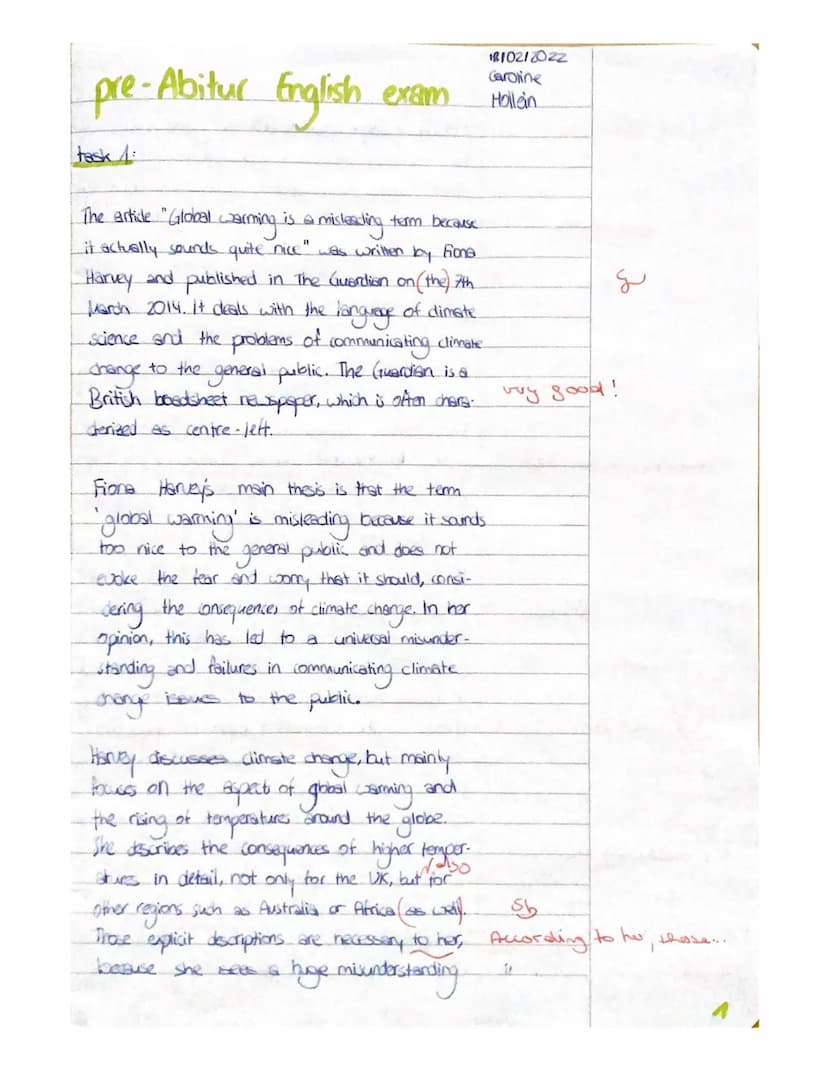 18/02/2022
Caroline
Hollein
pre-Abitur English exam
task 1:
The article "Global warming is a misleading term because
it actually sounds quite nice" was written by Fiona
Harvey and published in The Guardian on (the) 7th
March 2014. It deals with the language of climate
science and the problems of communicating climate
change to the general public. The Guardian is a
British boadsheet newspaper, which is often chara-
very good!
cterized as centre-left.
Fiona Harvey's main thesis is that the term
'global warming' is misleading because it sounds
too nice to the general public and does not
evoke the fear and worry that it should, consi-
dering the consequences of climate change. In her
opinion, this has led to a universal misunder-
standing and failures in communicating climate
change issues to the public.
Harvey discusses climate change, but mainly
focuses on the aspect of global warming and
the rising of temperatures around the globe.
She describes the consequences of higher temper-
atures in detail, not only for the UK, but √also for
other regions such as Australia or Africa (as well).
Sb
Those explicit descriptions are necessary to her,
According to her, those...
because she sees a huge misunderstanding
1